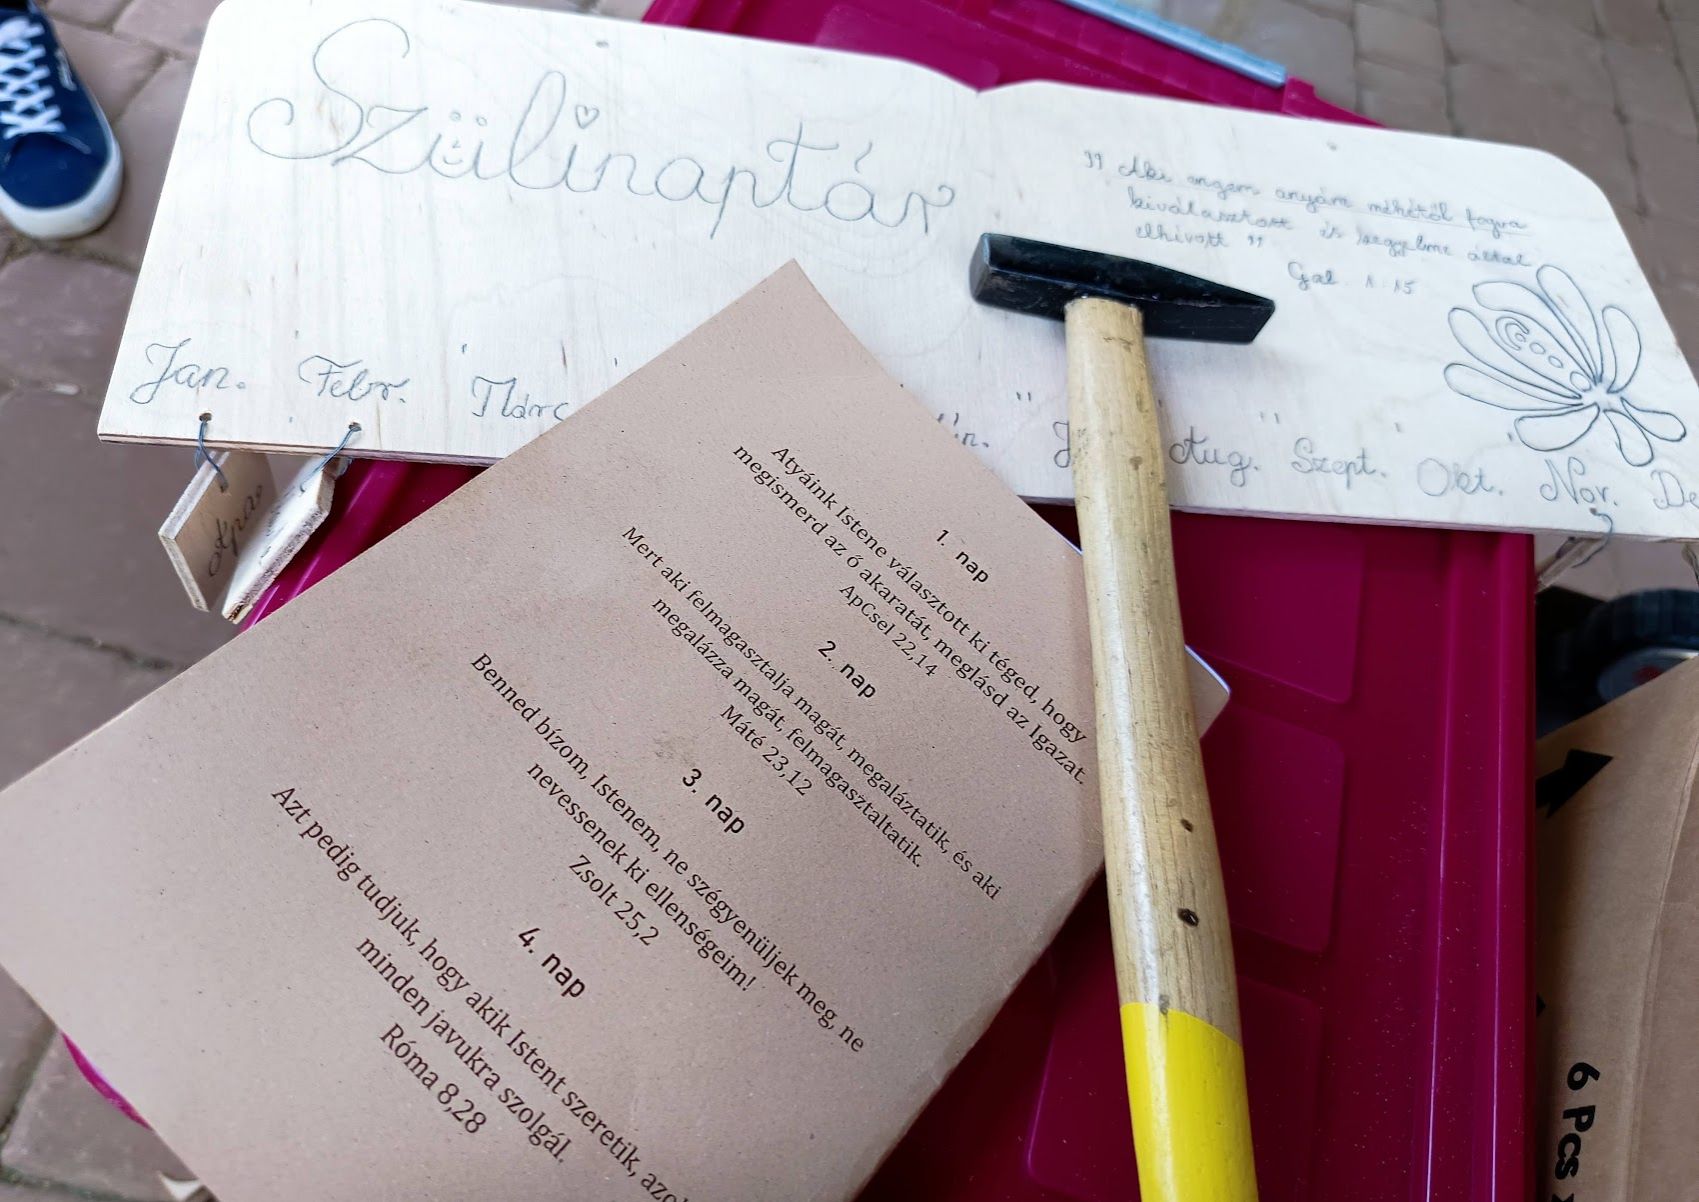 Szülinaptár
" Aki engem anyám méhétől fogva
kiválasztott és kegyelme által
elhívott "
Gal. 1:15
Jan. Febr. Márc
Aug. Szept. Okt. Nov. De
Apa
1. nap
Atyáink Istene választott ki téged, hogy
megismerd az ő akaratát, meglásd az Igazat.
ApCsel 22,14
2. nap
Mert aki felmagasztalja magát, megaláztatik, és aki
megalázza magát, felmagasztaltatik.
Máté 23,12
3. nap
Benned bízom, Istenem, ne szégyenüljek meg, ne
nevessenek ki ellenségeim!
Zsolt 25,2
4. nap
Azt pedig tudjuk, hogy akik Istent szeretik, azo
minden javukra szolgál.
Róma 8,28
6 Pcs